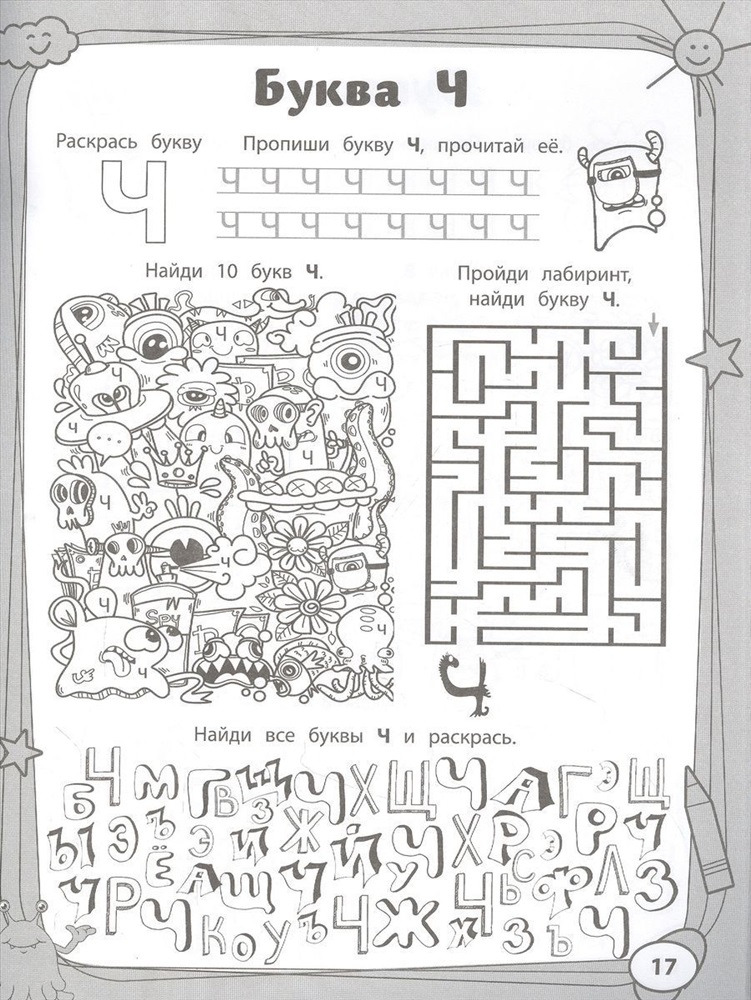 Буква Ч
Раскрась букву
Пропиши букву Ч, прочитай её.
Ч
Ч Ч Ч Ч Ч Ч Ч Ч
Ч Ч Ч Ч Ч Ч Ч Ч
Найди 10 букв Ч.
Пройди лабиринт,
найди букву Ч.
Ч
Ч
Ч
Ч
Ч
Ч
Ч
Ч
Ч
Ч
SPY
Ч
Найди все буквы Ч и раскрась.
Б Ч М Г В Щ З Ч Х Щ Ч А Г Э Щ
Ы Э Ъ Э И Ж Й Ч Х Р Э Р Ч
Ч Р Ч Ё А Щ Ч У С Ч Ь Ф Л З
К О У Ъ Ч Ж Х З Ъ Ч
17